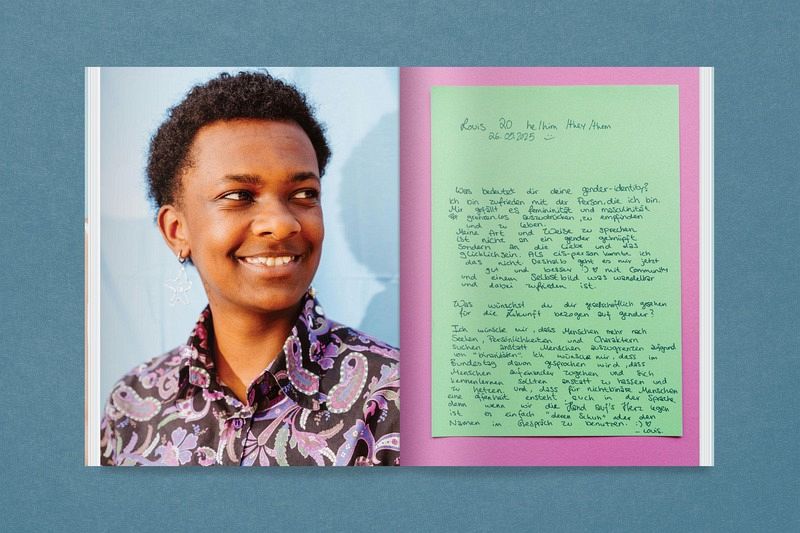 Louis 20 he/him /they/them
26.09.2025 :)
Was bedeutet dir deine gender-identity?
Ich bin zufrieden mit der Person, die ich bin.
Mir gefällt es femininität und masculinität
grenzenlos auszudrücken, zu empfinden
und zu leben.
Meine Art und Weise zu sprechen
ist nicht an ein gender geknüpft
sondern an die Liebe und das
glücklichsein. Als cis-person kannte ich
das nicht. Deshalb geht es mir jetzt
gut und besser :) ♡ mit Community
und einem Selbstbild was wandelbar
und dabei zufrieden ist.
Was wünschst du dir gesellschaftlich gesehen
für die Zukunft bezogen auf gender?
Ich wünsche mir, dass Menschen mehr nach
Seelen, Persönlichkeiten und Charaktern
suchen anstatt Menschen auszugrenzen aufgrund
von "binaritäten". Ich wünsche mir, dass im
Bundestag davon gesprochen wird, dass
Menschen aufeinander zugehen und sich
kennenlernen sollten anstatt zu hassen und
zu hetzen und, dass für nichtbinäre Menschen
eine offenheit ensteht auch in der Sprache
denn wenn wir die Hand auf's Herz legen
ist es einfach "deren Schuh" oder den
Namen im Gespräch zu benutzen. :) ♡
- Louis.